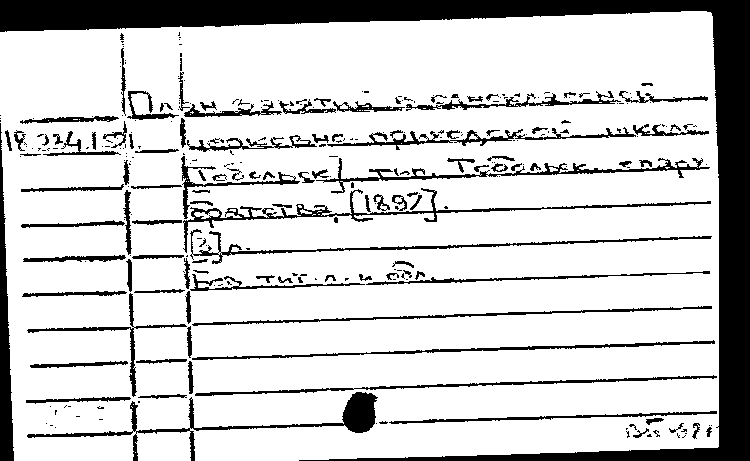 План занятий в одноклассной
18.234.151. церковно-приходской школе
Тобольск], тип. Тобольск. епарх
братства, [1897].
[3] л.
Без тит. л. и обл.